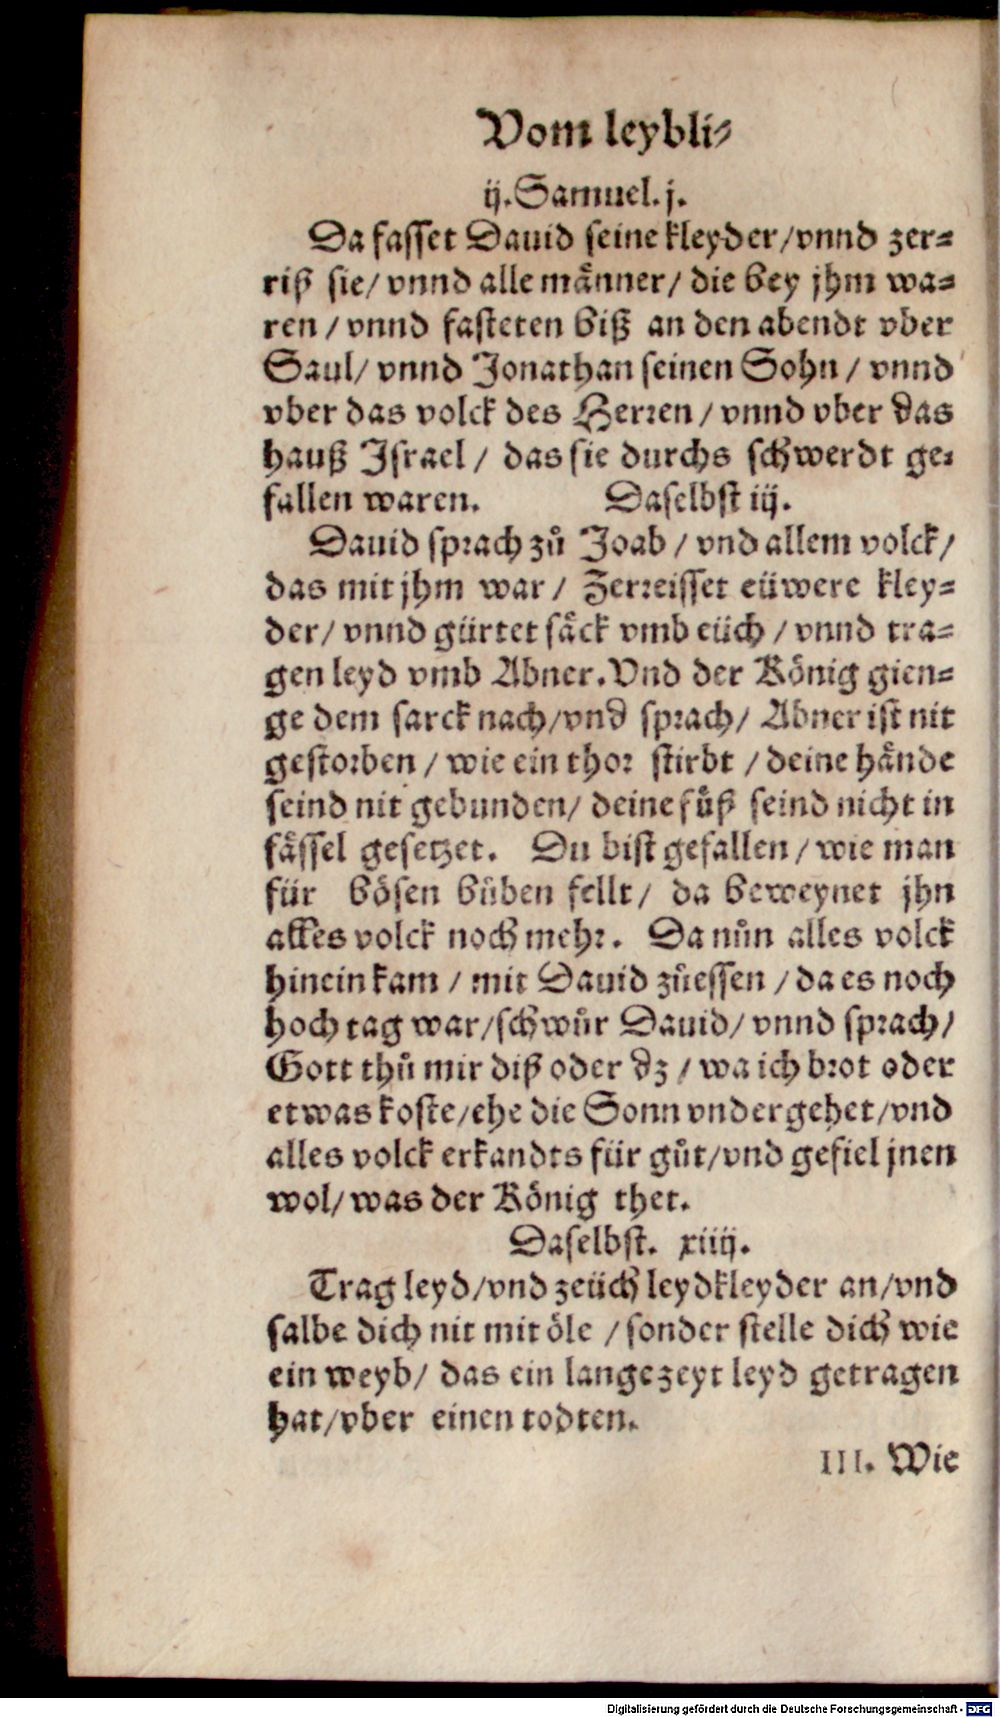 Vom leybli⸗
ij. Samuel. j.
Da fasset Dauid seine kleyder/ vnnd zer⸗
riß sie/ vnnd alle maͤnner/ die bey jhm wa⸗
ren / vnnd fasteten biß an den abendt vber
Saul/ vnnd Jonathan seinen Sohn / vnnd
vber das volck des Herren / vnnd vber das
hauß Israel / das sie durchs schwerdt ge⸗
fallen waren. Daselbst iij.
Dauid sprach zuͦ Joab / vnd allem volck/
das mit jhm war / Zerreisset eüwere kley⸗
der/ vnnd gürtet saͤck vmb eüch / vnnd tra⸗
gen leyd vmb Abner. Vnd der König gien⸗
ge dem sarck nach/ vnd sprach/ Abner ist nit
gestorben / wie ein thor stirbt / deine haͤnde
seind nit gebunden/ deine fuͤß seind nicht in
faͤssel gesetzet. Du bist gefallen / wie man
für bösen buͦben fellt/ da beweynet jhn
alles volck noch mehr. Da nuͦn alles volck
hinein kam / mit Dauid zuͦessen / da es noch
hoch tag war/ schwuͦr Dauid/ vnnd sprach/
Gott thuͦ mir diß oder dz / wa ich brot oder
etwas koste/ ehe die Sonn vndergehet/ vnd
alles volck erkandts für guͦt/ vnd gefiel jnen
wol/ was der König thet.
Daselbst. xiiij.
Trag leyd/ vnd zeüch leydkleyder an/ vnd
salbe dich nit mit öle / sonder stelle dich wie
ein weyb/ das ein lange zeyt leyd getragen
hat/ vber einen todten.
III. Wie
Digitalisierung gefördert durch die Deutsche Forschungsgemeinschaft - DFG